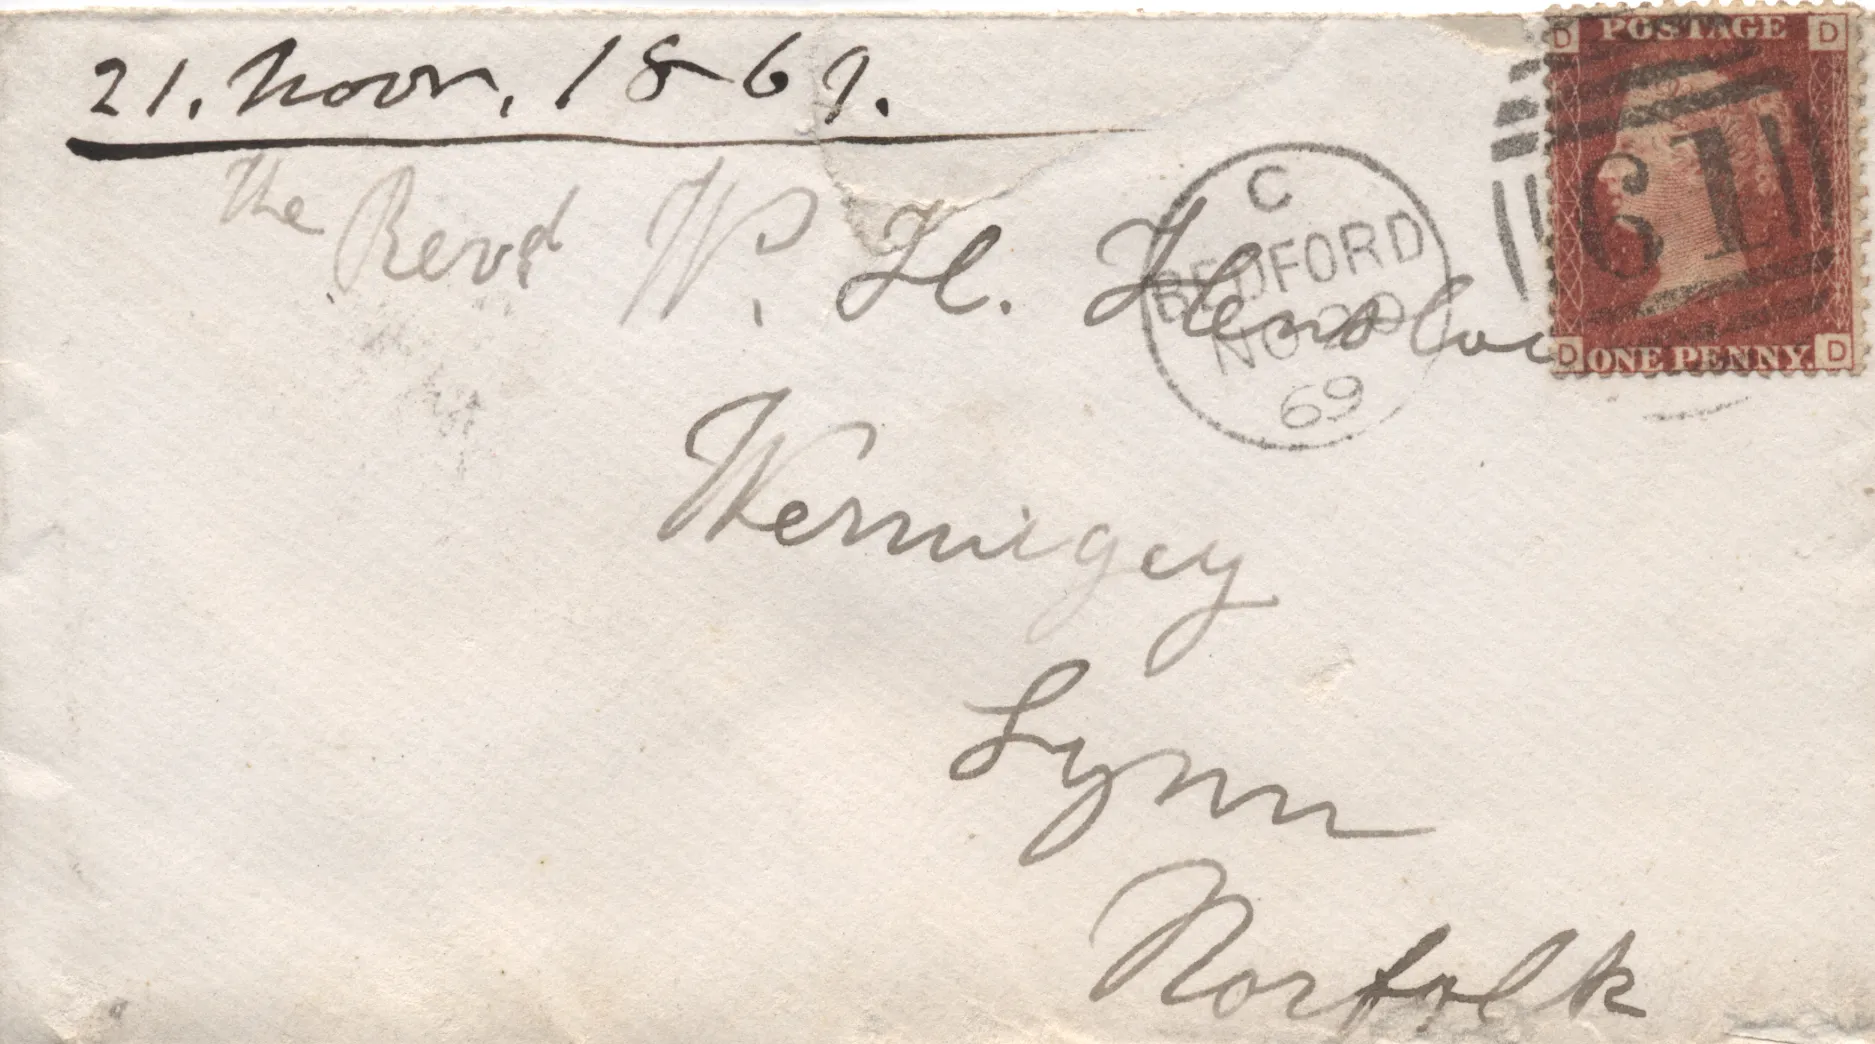 21. Novr. 1869.
The Revd W. H. Henslow
Wermigey
Lynn
Norfolk
C
BEDFORD
NO 20
69
D POSTAGE D
61
D ONE PENNY. D